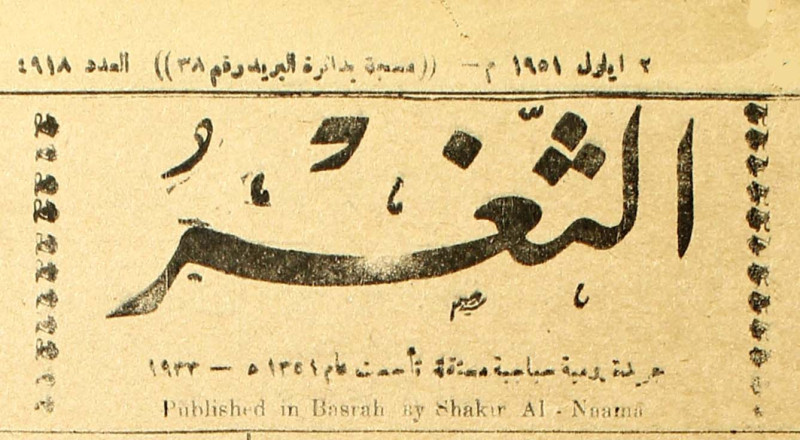 ٢ ايلول ١٩٥١ م — ((مسجلة بدائرة البريد رقم ٣٨)) العدد ٤٩١٨
الثَّغْرُ
جريدة يومية سياسية مستقلة تأسست عام ١٣٥١ ه — ١٩٣٣
Published in Basrah by Shakir Al - Naama